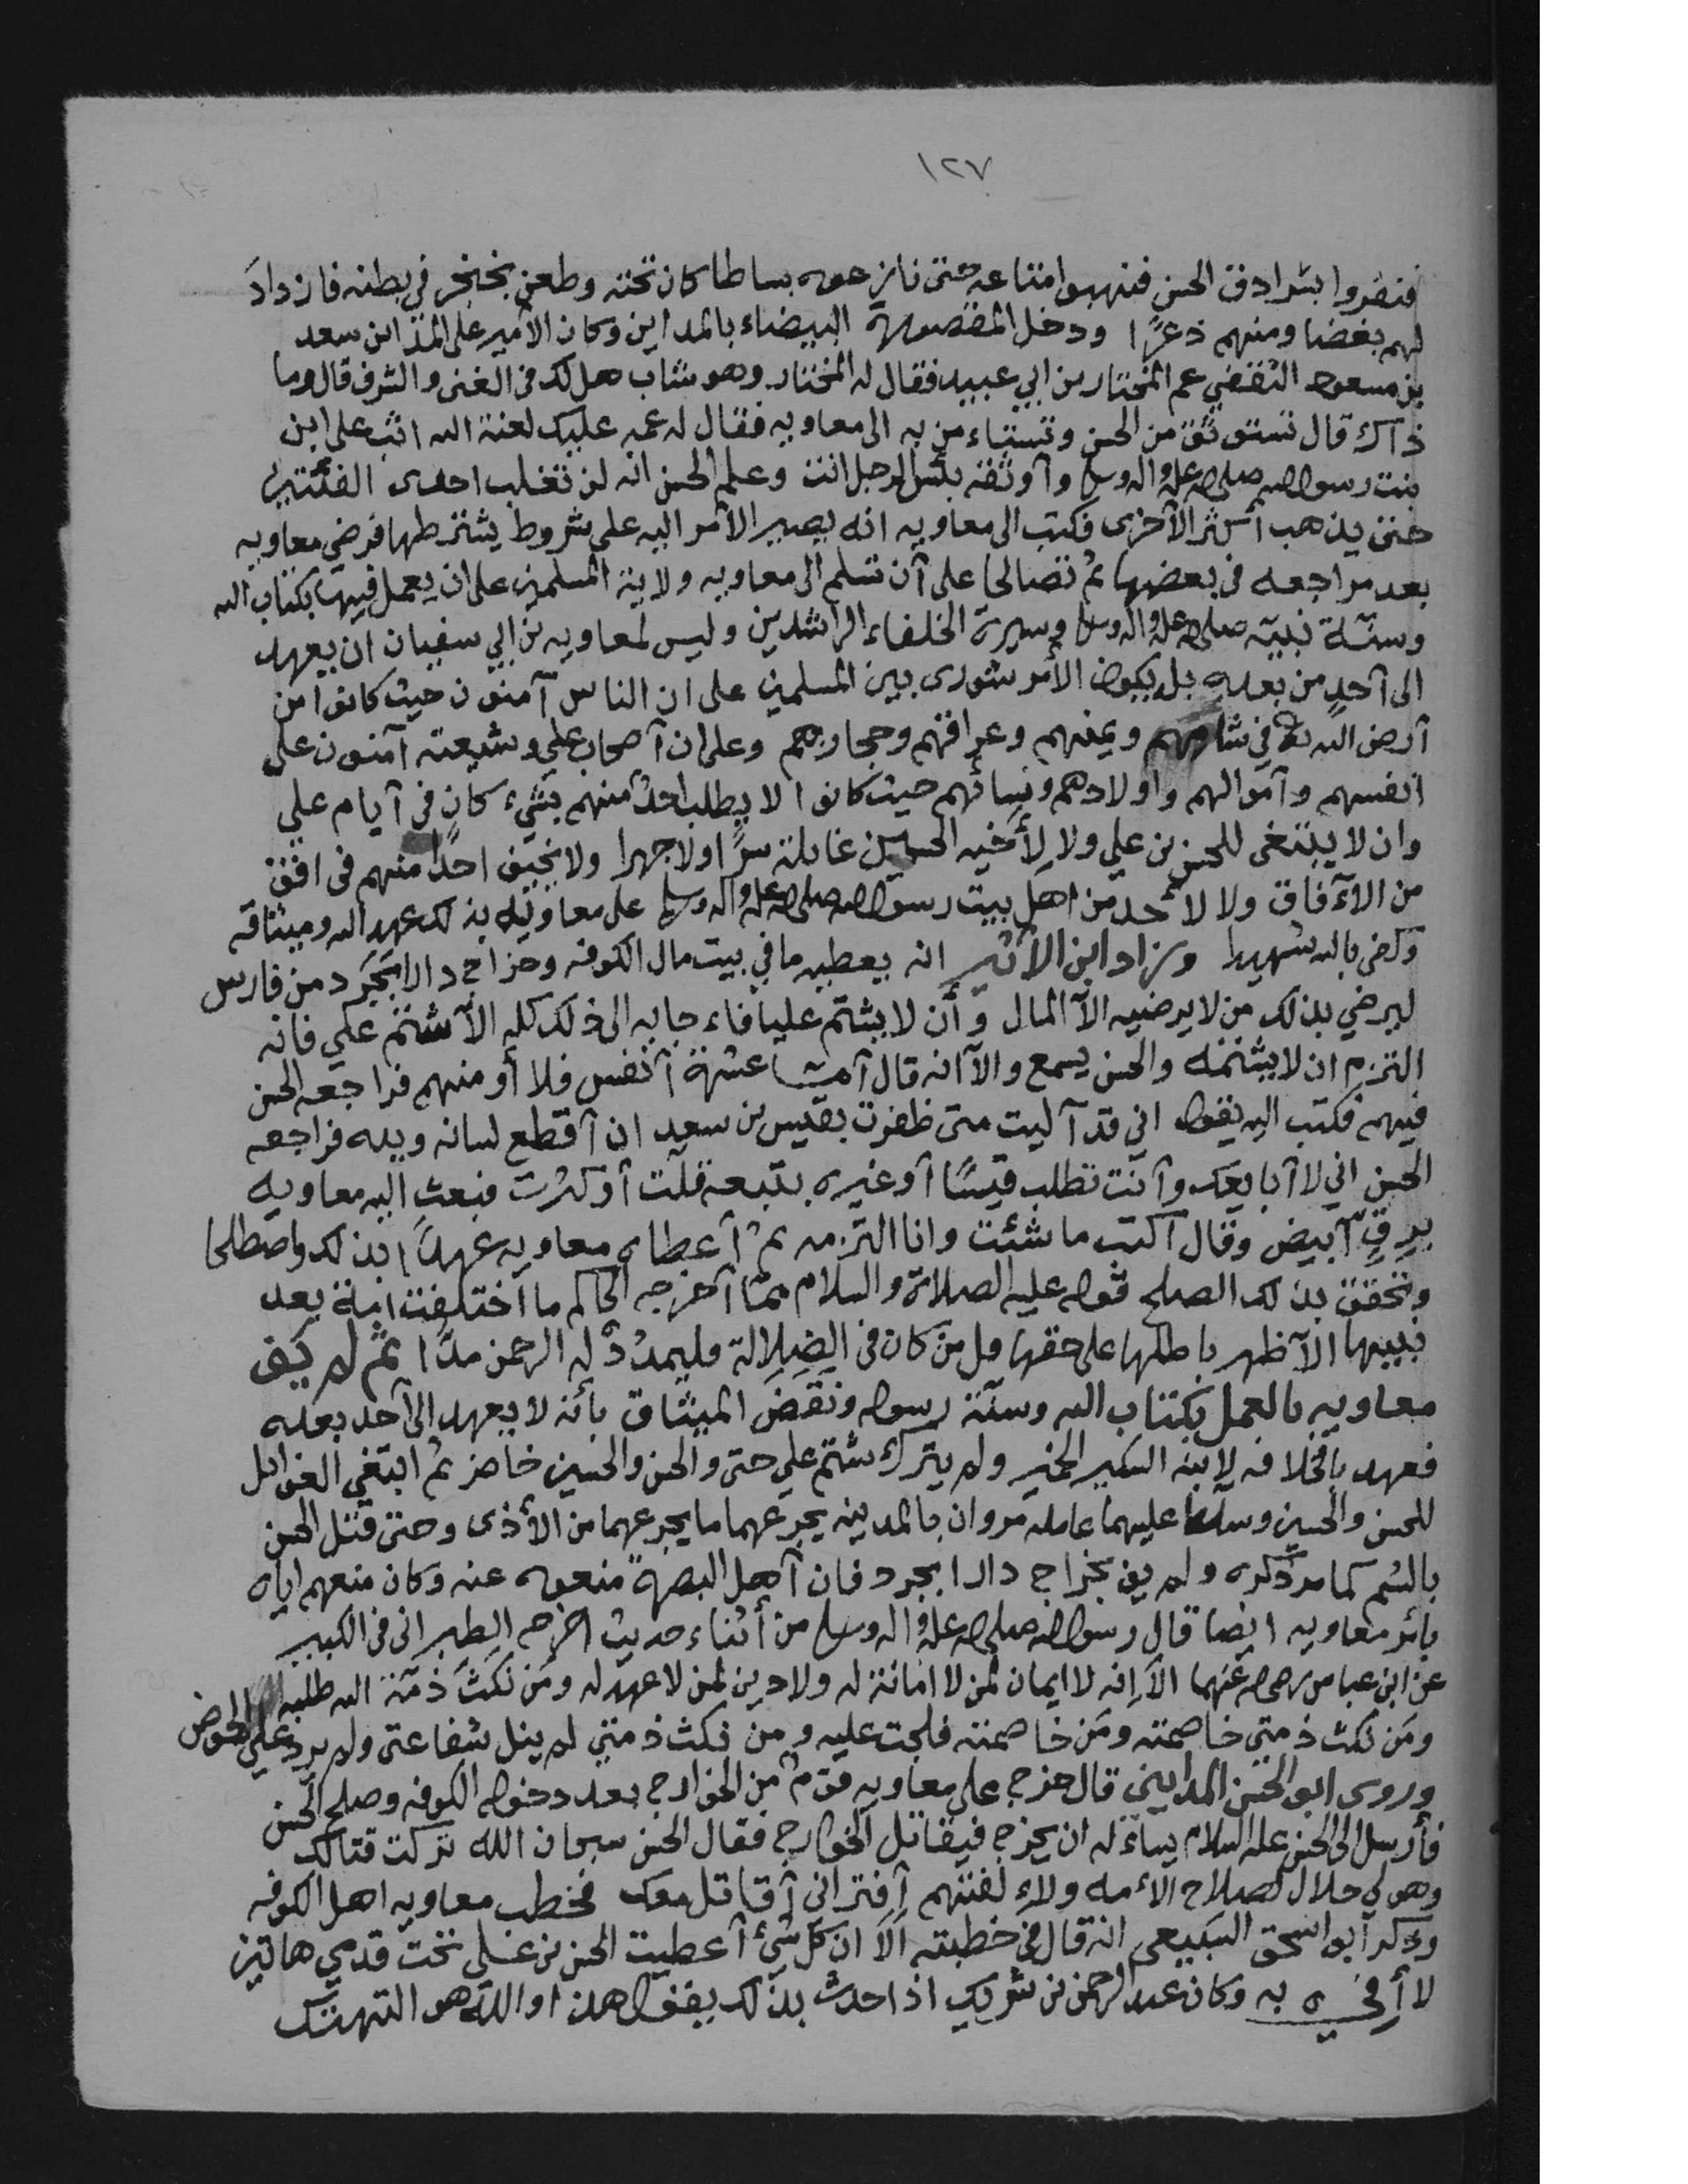 ١٢٧
فنفروا بسرادق الحسن فنهبوا متاعه حتى نازعوه بساطا كان تحته وطعن بخنجر في بطنه فازدادَ
لهم بغضا ومنهم ذعرًا ودخل المقصورة البيضاء بالمداين وكان الأمير على المداين سعد
بن مسعود الثقفي عم المختار بن ابي عبيد فقال له المختار وهو شاب هل لك في الغنى والشرف قال وما
ذاك قال تستوثق من الحسن وتستاءمن به الى معاويه فقال له عمه عليك لعنة الله اثب على ابن
بنت رسول الله صلى الله عليه واله وسلم وأوثقه بئس الرجل انت وعلم الحسن انه لن تغلب احدى الفئتين
حتى يذهب أكثر الأخرى فكتب الى معاويه انه يصير الأمر اليه على شروط يشترطها فرضي معاويه
بعد مراجعه في بعضها ثم تصالحا على أن تسلم الى معاويه ولاية المسلمين على ان يعمل فيها بكتاب الله
وسنّة نبيّه صلى الله عليه واله وسلم وسيرة الخلفاء الراشدين وليس لمعاويه بن ابي سفيان ان يعهد
الى أحدٍ من بعده بل يكون الأمر شورى بين المسلمين على ان الناس آمنون حيث كانوا من
أرض الله في شامهم ويمنهم وعراقهم وحجازهم وعلى ان أصحاب علي وشيعته آمنون على
انفسهم وأموالهم واولادهم ونسائهم حيث كانوا لا يطلب احدٌ منهم بشيء كان في أيام علي
وان لا يبتغى للحسن بن علي ولا لأخيه الحسين غايلة سرًّا ولا جهرا ولا يخيف احدًا منهم في افق
من الآفاق ولا لأحد من اهل بيت رسول الله صلى الله عليه واله وسلم على معاويه بذلك عهد الله وميثاقه
وكفى بالله شهيدا وزاد ابن الأثير انه يعطيه ما في بيت مال الكوفه وخراج دارابجرد من فارس
ليرضي بذلك من لا يرضيه الاّ المال وأن لا يشتم عليا فاء جابه الى ذلك كله الاّ شتم علي فانه
التزم ان لا يشتمه والحسن يسمع والاّ انه قال أما عشرة أنفس فلا أومنهم فراجعه الحسن
فيهم فكتب اليه يقول اني قد آليت متى ظفرت بقيس بن سعيد ان أقطع لسانه ويده فراجعه
الحسن اني لا أبايعك وأنت تطلب قيسًا أو غيره بتبعة قلّت أو كثرت فبعث اليه معاويه
برِقٍّ أبيض وقال اكتب ما شئت وانا التزمه ثم أعطاه معاويه عهدًا بذلك واصطلحا
وتحقق بذلك الصلح قوله عليه الصلاة والسلام ممّا أخرجه الحاكم ما اختلفت امة بعد
نبيها الاّ ظهر باطلها على حقها قل من كان في الضلالة فليمدُدْ له الرحمن مدًّا ثم لم يَفِ
معاويه بالعمل بكتاب الله وسنّة رسوله ونَقَضَ الميثاق بأنه لا يعهد الى أحد بعده
فعهد بالخلافه لابنه السكير الخمير ولم يترك شتم علي حتى والحسن والحسين حاضر ثم ابتغي الغوايل
للحسن والحسين وسلط عليهما عامله مروان بالمدينه يجرعهما ما يجرعهما من الأذى وحتى قتل الحسن
بالسُّم كما مر ذكره ولم يف بخراج دارابجرد فان أهل البصرة منعوه عنه وكان منعهم اياه
بأمر معاويه ايضا قال رسول الله صلى الله عليه واله وسلم من أثناء حديث اخرجه الطبراني في الكبير
عن ابن عباس رضي الله عنهما الاَ انه لا ايمان لمن لا امانة له ولا دين لمن لا عهد له ومَن نكَثَ ذمّة الله طلبه
ومَن نكث ذمتي خاصمته ومَن خاصمته فلجت عليه ومن نكث ذمتي لم ينل شفاعتي ولم يرد علي الحوض
وروى ابو الحسن المدايني قال خرج على معاويه قومٌ من الخوارج بعد دخوله الكوفه وصلح الحسن
فأرسل الى الحسن عليه السلام يساءله ان يخرج فيقاتل الخوارج فقال الحسن سبحان الله تركت قتالك
وهو لي حلال لصلاح الأمه ولاءلفتهم أفتراني أقاتل معك فخطب معاويه اهل الكوفه
وذكر أبو اسحق السبيعي انه قال في خطبته اَلاَ ان كل شيء أعطيت الحسن بن علي تحت قدمي هاتين
لا أفي به وكان عبد الرحمن بن شريك اذا حدث بذلك يقول هذا والله هو التهتك